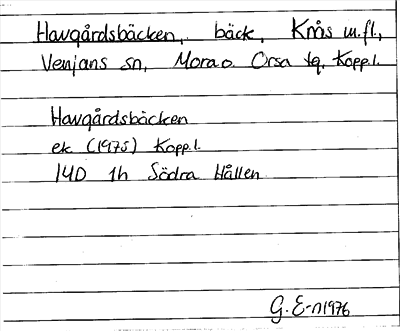 Havgårdsbäcken, bäck, Knås m.fl.,
Venjans sn, Mora o. Orsa tg, Kopp.l.
Havgårdsbäcken
ek (1975) Kopp.l.
14D 1h Södra Hållen
G. E-n 1976